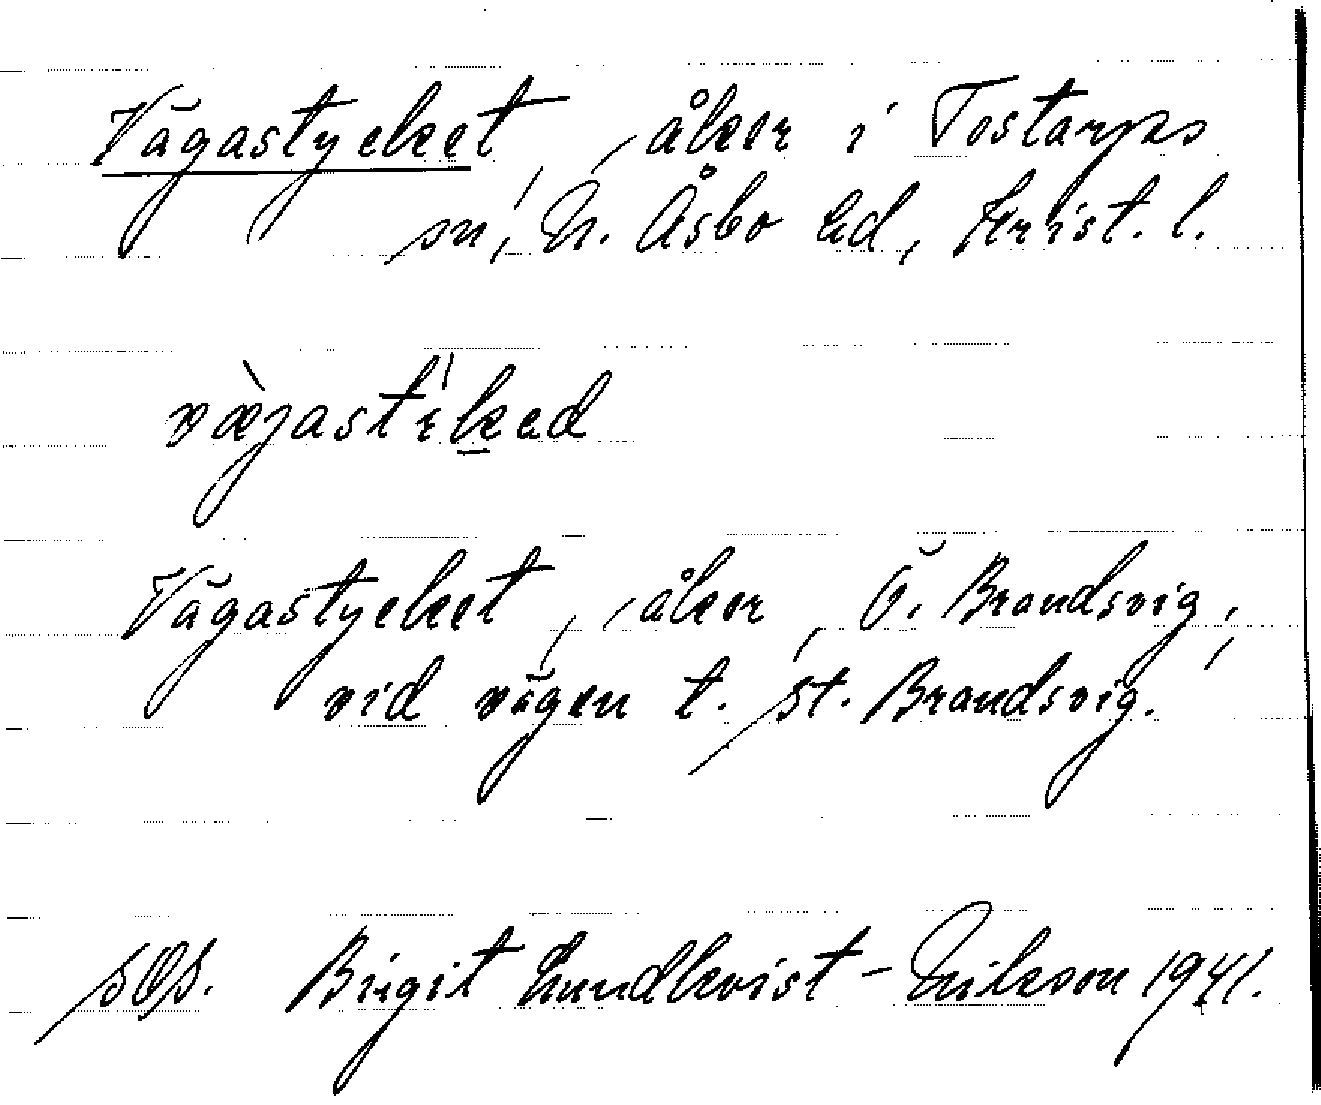 Vägastycket, åker i Tostarps
sn, N. Åsbo hd, Krist. l.
væ̀jastıkəd
Vägastycket, åker, Ö. Brandsvig,
vid vägen t. St. Brandsvig.
SOS. Birgit Lundkvist - 1941.